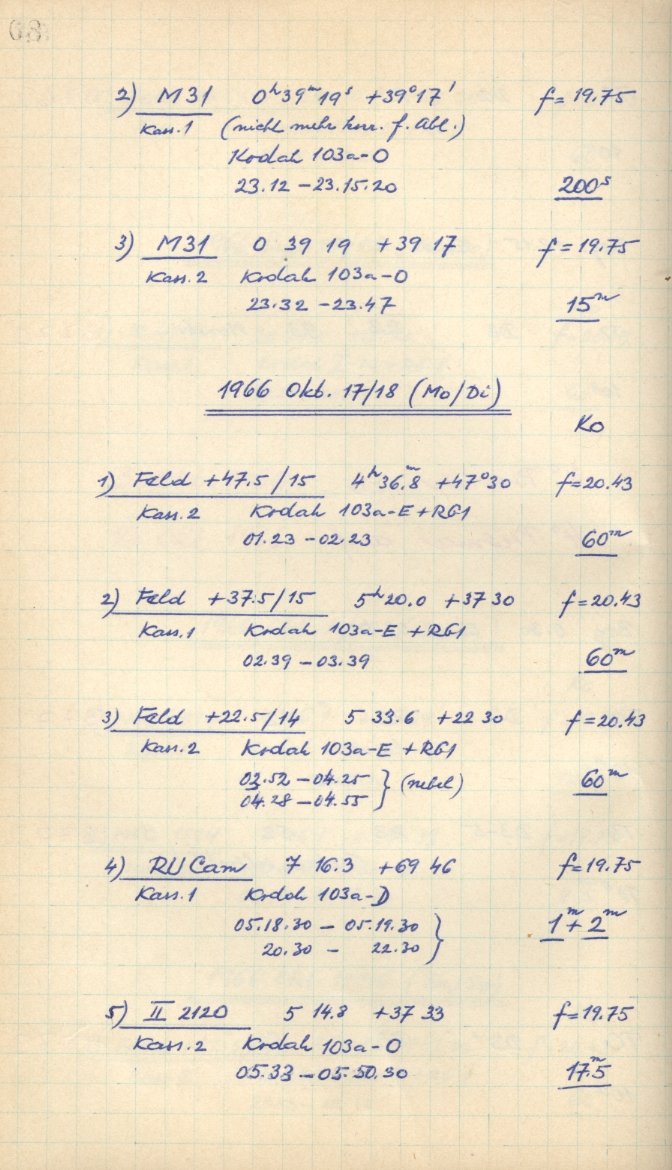 80
2) M31 0ʰ39ᵐ19ˢ +39°17' f=19.75
Kass.1 (nicht mehr korr. f. Abl.)
Kodak 103a-O
23.12 - 23.15.20 200ˢ
3) M31 0 39 19 +39 17 f=19.75
Kass.2 Kodak 103a-O
23.32 - 23.47 15ᵐ
1966 Okt. 17/18 (Mo/Di)
Ko
1) Feld +47.5/15 4ʰ36ᵐ.8 +47°30 f=20.43
Kass.2 Kodak 103a-E+RG1
01.23 - 02.23 60ᵐ
2) Feld +37.5/15 5ʰ20.0 +37 30 f=20.43
Kass.1 Kodak 103a-E +RG1
02.39 - 03.39 60ᵐ
3) Feld +22.5/14 5 33.6 +22 30 f=20.43
Kass.2 Kodak 103a-E +RG1
03.52 - 04.25 } (Nebel) 60ᵐ
04.28 - 04.55
4) RU Cam 7 16.3 +69 46 f=19.75
Kass.1 Kodak 103a-D
05.18.30 - 05.19.30 } 1ᵐ+2ᵐ
20.30 - 22.30
5) II 2120 5 14.8 +37 33 f=19.75
Kass.2 Kodak 103a-O
05.33 - 05.50.30 17ᵐ.5